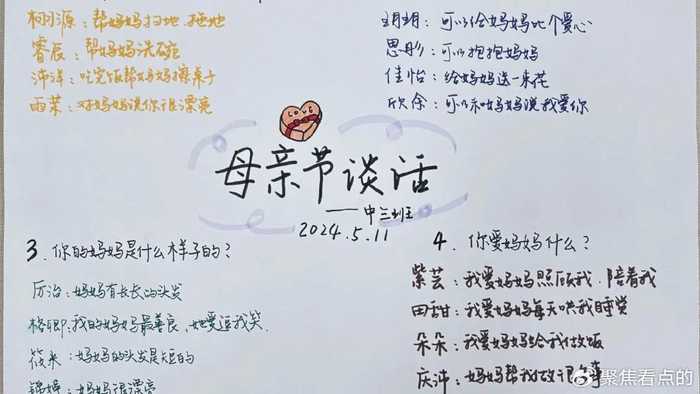 桐源：帮妈妈扫地、拖地
睿辰：帮妈妈洗碗
沛洋：吃完饭帮妈妈擦桌子
雨菜：对妈妈说你很漂亮
玥玥：可以给妈妈比个爱心
思彤：可以抱抱妈妈
佳怡：给妈妈送一束花
欣余：可以亲口妈妈说我爱你
LOVE
母亲节谈话
——中三班
2024.5.11
3、你的妈妈是什么样子的？
厉治：妈妈有长长的头发
我的妈妈最善良，她爱逗我笑
筱米：妈妈的头发是短的
妈妈很漂亮
4、你爱妈妈什么？
紫芸：我爱妈妈照顾我、陪着我
田甜：我爱妈妈每天哄我睡觉
朵朵：我爱妈妈给我做饭
庆沛：妈妈帮我做很多事
@聚焦看点的